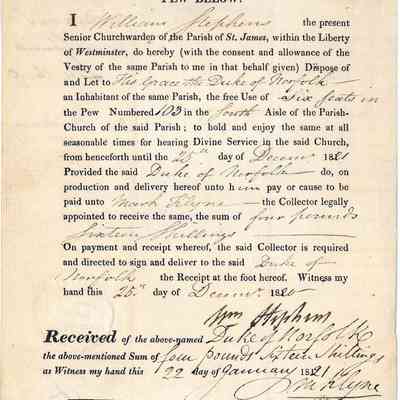 PEW BELOW.
I William Stephens the present
Senior Churchwarden of the Parish of St. James, within the Liberty
of Westminster, do hereby (with the consent and allowance of the
Vestry of the same Parish to me in that behalf given) Dispose of
and Let to His Grace the Duke of Norfolk
an Inhabitant of the same Parish, the free Use of six seats in
the Pew Numbered 103 in the South Aisle of the Parish-
Church of the said Parish; to hold and enjoy the same at all
seasonable times for hearing Divine Service in the said Church,
from henceforth until the 25th day of Decemr. 1821
Provided the said Duke of Norfolk do, on
production and delivery hereof unto him pay or cause to be
paid unto Mark Klyne the Collector legally
appointed to receive the same, the sum of four pounds
Sixteen Shillings
On payment and receipt whereof, the said Collector is required
directed to sign and deliver to the said Duke of
Norfolk the Receipt at the foot hereof. Witness my
hand this 25th day of Decemr. 1820
Wm Stephens
Received of the above-named Duke of Norfolk
the above-mentioned Sum of four pounds sixteen Shillings
as Witness my hand this 22 day of January 1821
M Klyne